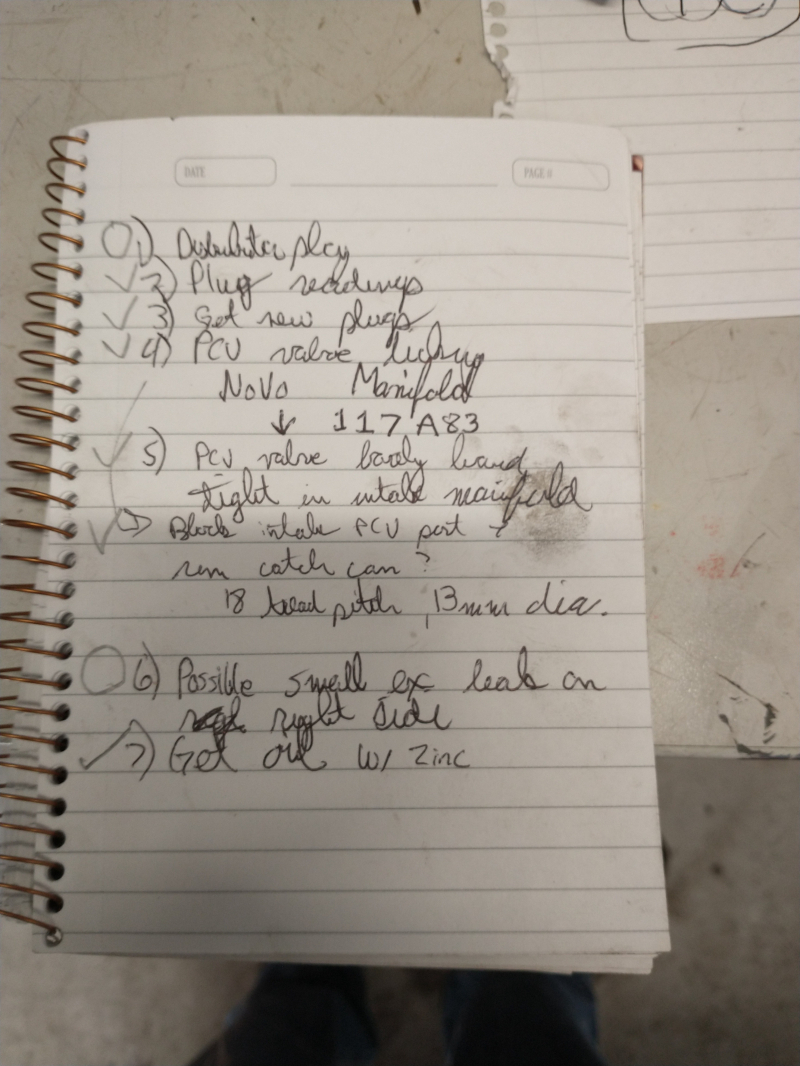 DATE
PAGE #
1) Distributor play
2) Plug readings
3) Get new plugs
4) PCV valve
NoVo Manifold
↓ 117A83
5) PCV valve
tight in intake manifold
Block intake PCV port
run catch can?
18 tread pitch, 13mm dia.
6) Possible small ex leak on
right side
7) Get oil w/ Zinc